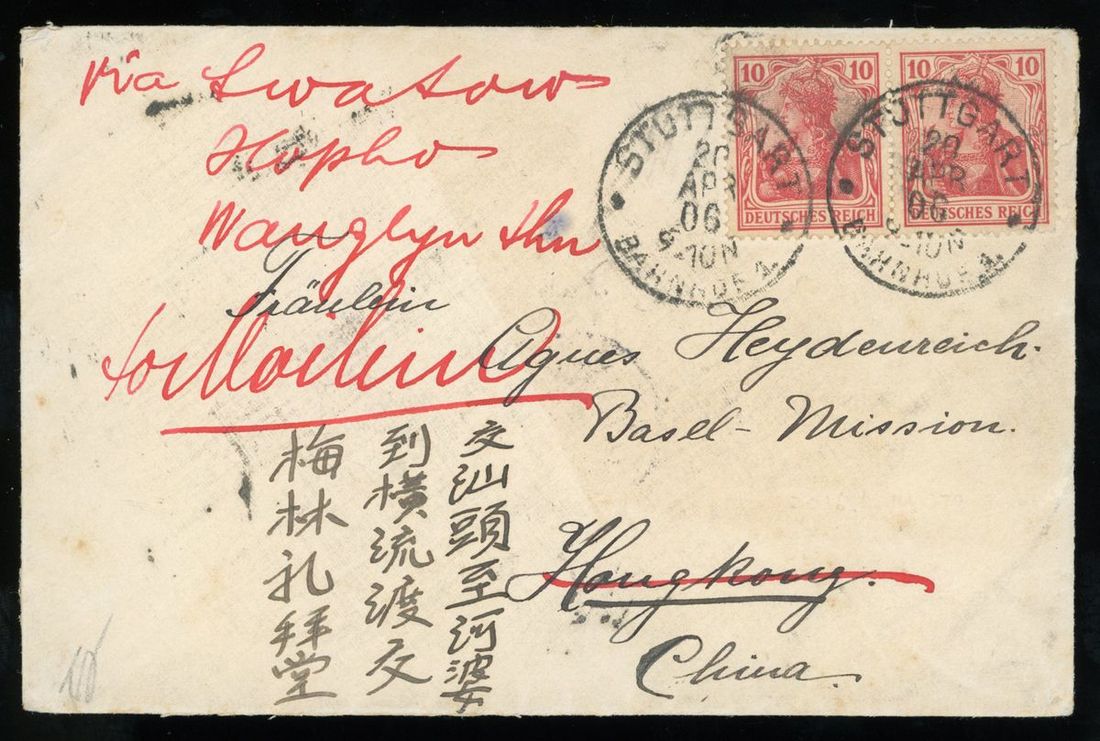 via Swatow
Hopho
Wanglyn thn
Fräulein
for Moilim
Agnes Heydenreich.
Basel-Mission.
Hongkong.
China.
交汕頭至河婆
到橫流渡交
梅林礼拜堂
10 10
DEUTSCHES REICH
10 10
DEUTSCHES REICH
STUTTGART
20
APR
06
9-10N
BAHNHOF 1.
STUTTGART
20
APR
06
9-10N
BAHNHOF 1.